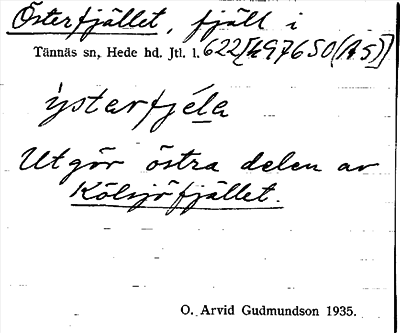 Österfjället, fjäll i
Tännäs sn, Hede hd. Jtl. l. 622[497650(A5)]
ýsterfjéla
Utgör östra delen av
Kölsjöfjället.
O. Arvid Gudmundson 1935.